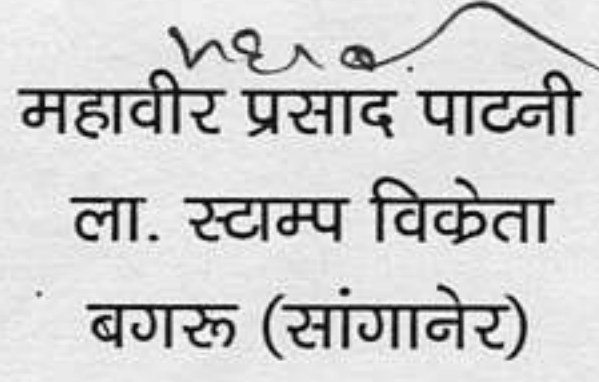 महावीर प्रसाद पाटनी
ला. स्टाम्प विक्रेता
बगरू (सांगानेर)